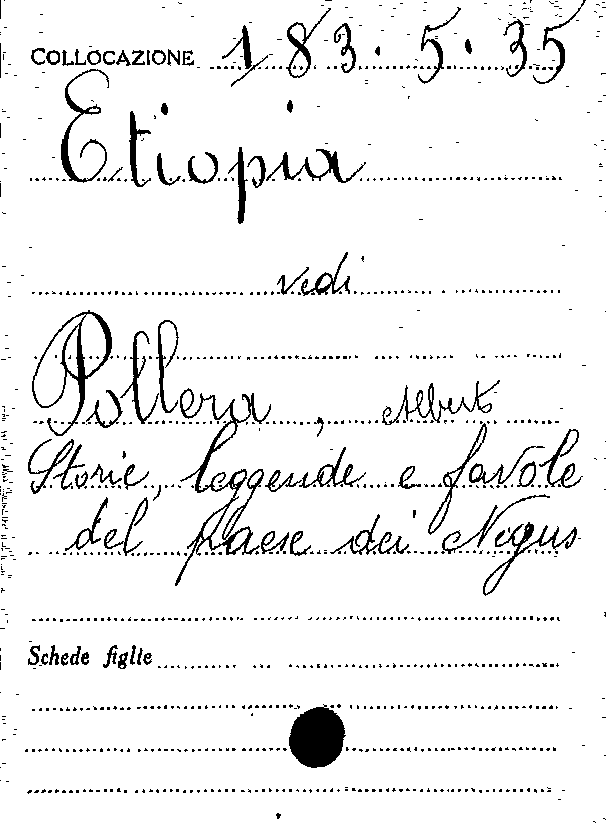 COLLOCAZIONE 183.5.35
Etiopia
vedi
Pollera, Alberto
Storie, leggende e favole
del paese dei Negus
Schede figlie